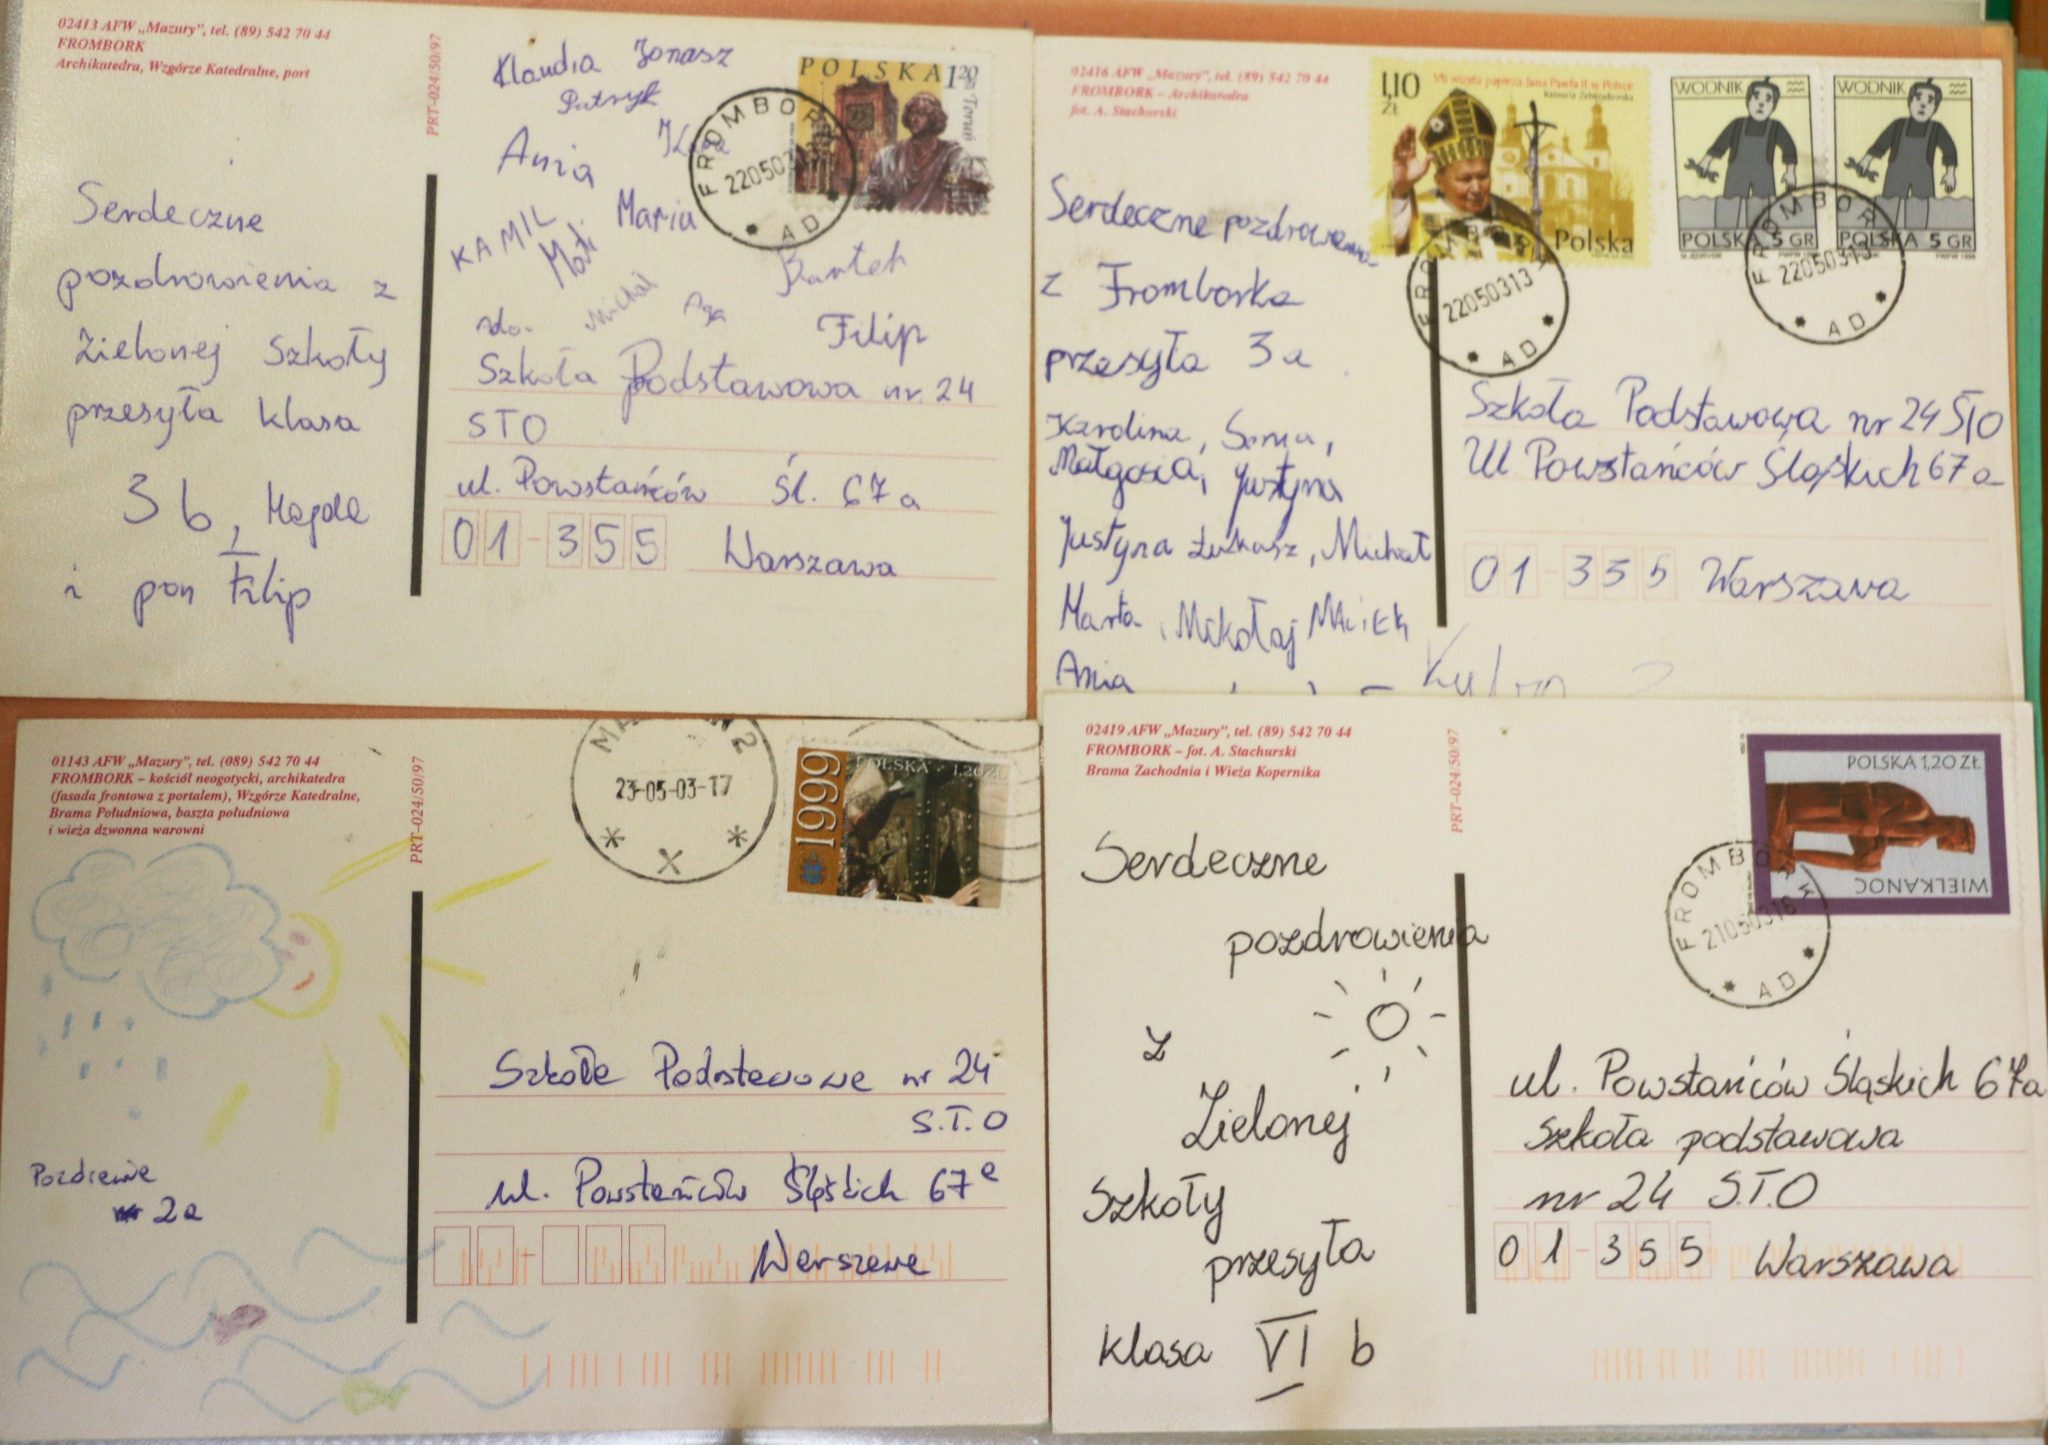 02413 AFW „Mazury”, tel. (89) 542 70 44
FROMBORK
Archikatedra, Wzgórze Katedralne, port
PRT-024/50/97
Serdeczne
pozdrowienia z
Zielonej Szkoły
przesyła klasa
3 b, Magda
i pan Filip
Klaudia Jonasz
Patryk
Ania
KAMIL
Mati
Maria
Michał
Bartek
Filip
do.
Szkoła Podstawowa nr. 24
STO
ul. Powstańców Śl. 67 a
01-355 Warszawa
POLSKA 1 20 zł
Toruń
FROMBORK
22050313
AD
02416 AFW „Mazury”, tel. (89) 542 70 44
FROMBORK – Archikatedra
fot. A. Stachurski
Serdeczne pozdrowienia
z Fromborka
przesyła 3a
Karolina, Sonia,
Małgosia, Justyna
Justyna Łukasz, Michał
Marta, Mikołaj Maciek
Ania
1,10 ZŁ
VII wizyta papieża Jana Pawła II w Polsce
Polska
WODNIK
POLSKA 5 GR
WODNIK
POLSKA 5 GR
FROMBORK
22050313
AD
FROMBORK
22050313
AD
Szkoła Podstawowa nr 24 STO
Ul Powstańców Śląskich 67a
01-355 Warszawa
01143 AFW „Mazury”, tel. (089) 542 70 44
FROMBORK – kościół neogotycki, archikatedra
(fasada frontowa z portalem), Wzgórze Katedralne,
Brama Południowa, baszta południowa
i wieża dzwonna warowni
PRT-024/50/97
23-05-03-17
1999
POLSKA 1,20 ZŁ
Szkoła Podstawowa nr 24
S.T.O
ul. Powstańców Śląskich 67a
Warszawa
2a
02419 AFW „Mazury”, tel. (89) 542 70 44
FROMBORK – fot. A. Stachurski
Brama Zachodnia i Wieża Kopernika
PRT-024/50/97
Serdeczne
pozdrowienia
z
Zielonej
Szkoły
przesyła
klasa VI b
POLSKA 1,20 ZŁ
WIELKANOC
FROMBORK
21050316
AD
ul. Powstańców Śląskich 67a
Szkoła podstawowa
nr 24 S.T.O
01-355 Warszawa